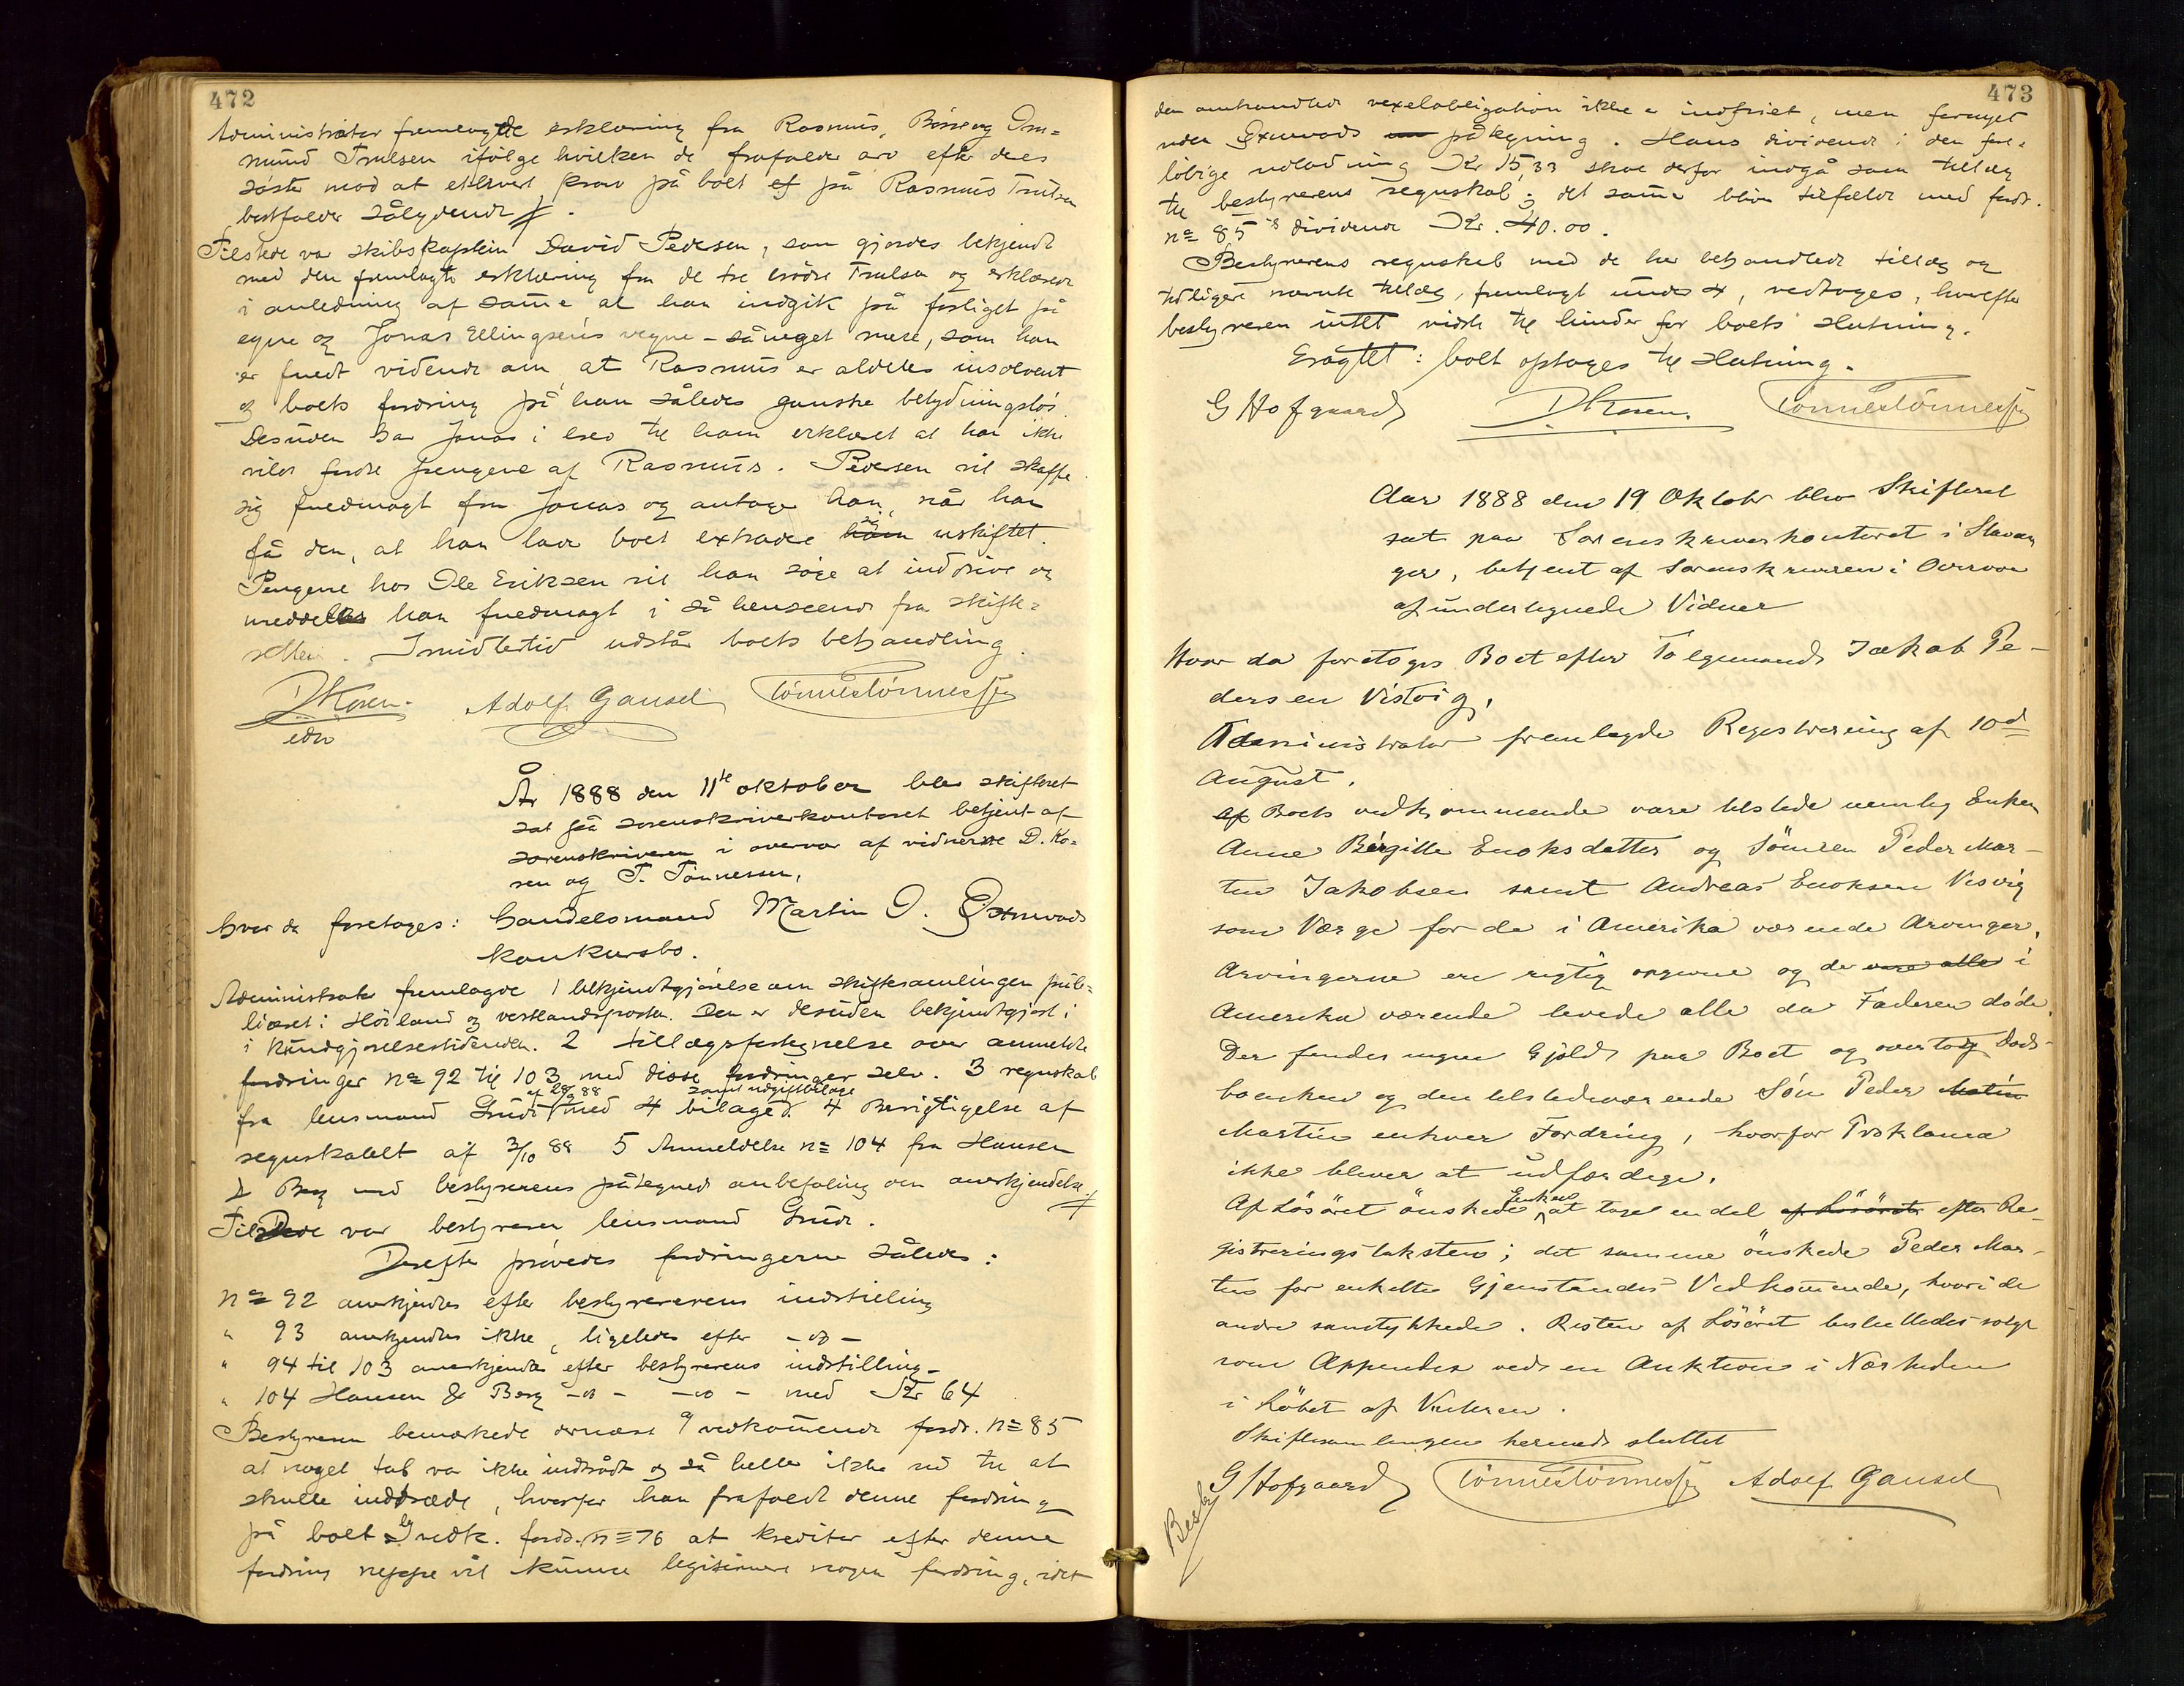 472
Administrator fremlagde erklæring fra Rasmus, Børre og Osm=
mund Trulsen ifølge hvilken de frafalder arv efter deres
søster mod at ethvert krav på boet ef på Rasmus Trulsen
bortfalder sålydende #.
Tilstede var skibskaptein David Pedersen, som gjordes bekjendt
med den fremlagte erklæring fra de tre brødre Trulsen og erklærede
i anledning af samme at han indgik på forliget på
egne og Jonas Ellingsens vegne – så meget mere, som han
er fuldt vidende om, at Rasmus er aldeles insolvent
og boets fordring på han således ganske betydningsløs.
Desuden har Jonas i brev til ham erklæret at han ikke
vilde fordre pengene af Rasmus. Pedersen vil skaffe
sig fuldmagt fra Jonas og antager han, når han
få den, at han lader boet extradere sig uskiftet.
Pengene hos Ole Eriksen vil han søge at inddrive og
meddeles han fuldmagt i så henseende fra skifte=
retten. Imidlertid udstår boets behandling.
D Kosen. Adolf Gausel Tønnes Tønnessen
edv
År 1888 den 11te oktober blev skifteret
sat på sorenskriverkontoret betjent af
sorenskriveren i overvær af vidnerne D. Ko=
sen og T. Tønnessen,
hvor da foretoges: handelsmand Martin O.
konkursbo.
Administrator fremlagde 1 bekjendtgjørelse om skiftesamlingen pub=
liceret i Høiland og vestlandsposten. Den er desuden bekjendtgjort i
i kundgjørelsestidenden. 2 tillægsfortegnelse over anmeldte
fordringer no 92 til 103 med disse fordringer selv. 3 regnskab
af 28/9 88 samt udgiftbilage
fra lensmand Grude med 4 bilage. 4 Berigtigelse af
regnskabet af 3/10 88 5 Anmeldelse no 104 fra Hansen
& Berg med bestyrerens påtegnede anbefaling om anerkjendelse #
Tilstede var bestyreren lensmand Grude.
Derefter prøvedes fordringerne således:
no 92 anerkjendtes efter bestyrererens indstilling
" 93 anerkjendtes ikke, ligeledes efter – do –
" 94 til 103 anerkjendtes efter bestyrerens indstilling –
" 104 Hansen & Berg – do – – do – med Kr 64.
Bestyreren bemærkede dernæst vedkommende fordr. no 85
at noget tab var ikke indtrådt og så heller ikke ud til at
skulle indtræde, hvorfor han frafaldt denne fordring
på boet og vedk. fordr. no 76 at kreditor efter denne
fordring neppe vil kunne legitimere nogen fordring, idet
473
den omhandlede vexelobligation ikke er indfriet, men fornyet
uden påtegning. Hans dividende i den fore=
løbige udlodning Kr 15,33 skal derfor indgå som tillæg
til bestyrerens regnskab; det samme bliver tilfældet med fordr.
no 85's dividende Kr. 40.00.
Bestyrerens regnskab med de her behandlede tillæg og
tidligere nævnte tillæg, fremlagt under 4, vedtoges, hvorefter
bestyreren intet vidste til hinder for boets slutning.
Eragtet: boet optages til slutning.
G Hofgaard D Kosen. Tønnes Tønnessen
Aar 1888 den 19 Oktober blev Skifteret
sat paa Sorenskriverkontoret i Stavan
ger, betjent af Sorenskriveren i Overvær
af undertegnede Vidner
Hvor da foretoges Boet efter Følgemand Jakob Pe-
dersen Vistvig,
Administrator fremlagde Registrering af 10d
August.
Af Boets vedkommende vare tilstede nemlig Enken
Anne Birgitte Enoksdatter og Sønnen Peder Mar-
tin Jakobsen samt Andreas Enoksen Visvig
som Værge for de i Amerika værende Arvinger,
Arvingerne ere rigtig opgivne og de vare alle i
Amerika værende levede alle da Faderen døde.
Der findes ingen Gjæld paa Boet og overtog Døds-
boenken og den tilstedeværende Søn Peder Matin
Martin enhver Fordring, hvorfor Proklama
ikke bliver at udfærdige.
Af Løsøret ønskede Enken at tage en del af Løsöret efter Re-
gistreringstaksten; det samme ønskede Peder Mar-
tin for enkelte Gjenstandes Vedkommende, hvori de
andre samtykkede. Resten af Løsøret besluttedes solgt
som Appendix ved en Auktion i Nærheden
i Løbet af Vinteren.
Skiftesamlingen hermed sluttet
G Hofgaard Tønnes Tønnessen Adolf Gausel